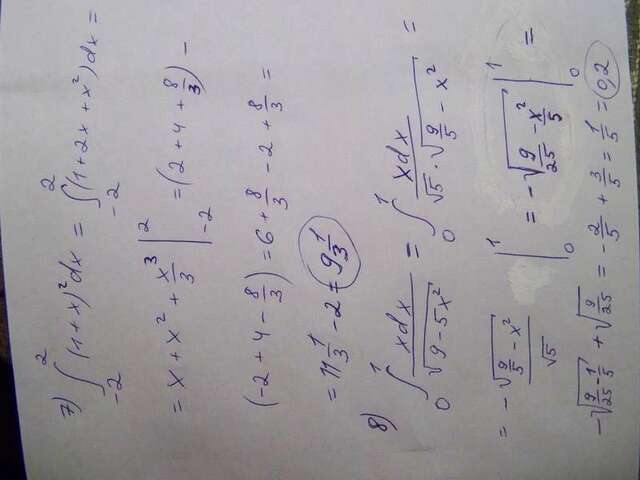 7) ∫₋₂² (1+x)² dx = ∫₋₂² (1+2x+x²) dx =
= x + x² + x³/3 |₋₂² = (2+4+8/3) −
(−2+4−8/3) = 6 + 8/3 − 2 + 8/3 =
= 11 1/3 − 2 = 9 1/3
8) ∫₀¹ xdx/√(9−5x²) = ∫₀¹ xdx/(√5·√(9/5−x²)) =
= −√(9/5−x²)/√5 |₀¹ = −√(9/25−x²/5) |₀¹ =
−√(9/25−1/5) + √(9/25) = −2/5 + 3/5 = 1/5 = 0,2